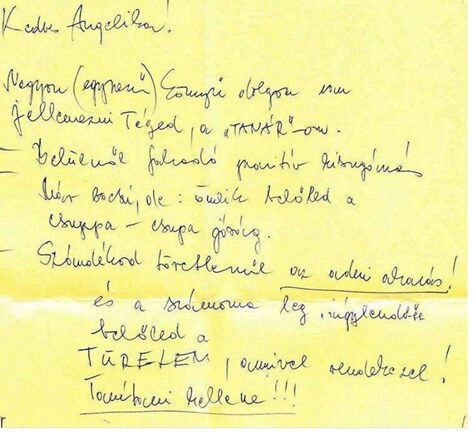 Kedves Angelika!
Nagyon (egyszerű) könnyű dolgom van
jellemezni Téged, a „TANÁR”-om.
– Belülről fakadó pozitív kisugárzás
Már bocsi, de : ömlik belőled a
csuppa – csupa görög.
– Szándékod töretlenül az adni akarás!
és a számomra leg irigylendőbb
belőled a
TÜRELEM, amivel rendelkezel!
Tanítani kellene!!!